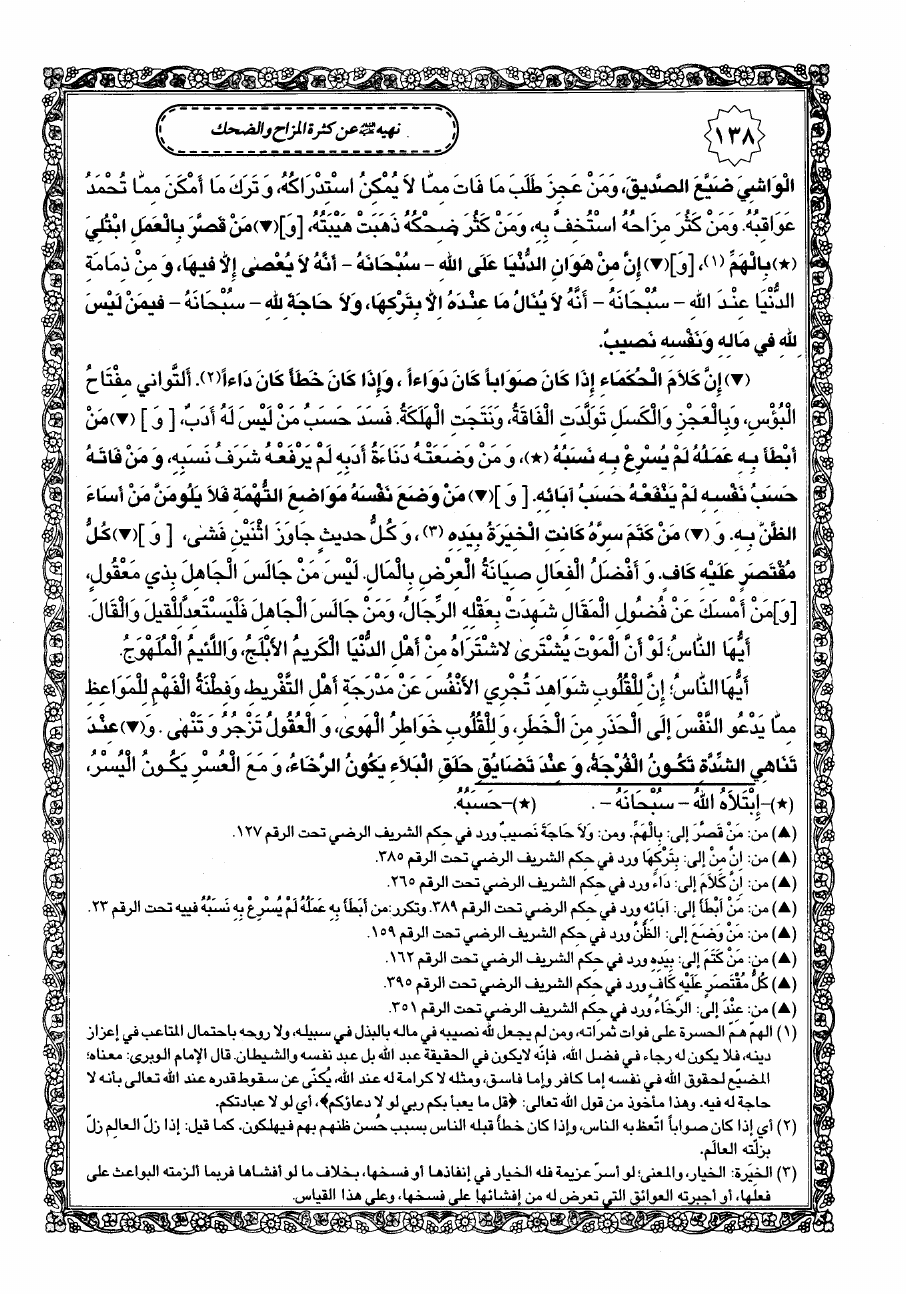 ١٣٨
نهيه عن كثرة المزاح والضحك
الْوَاشِيَ ضَيَّعَ الصَّديقَ، وَمَنْ عَجِزَ طَلَبَ مَا فَاتَ مِمَّا لاَ يُمْكِنُ اسْتِدْرَاكُهُ، وَتَرَكَ مَا أَمْكَنَ مِمَّا تُحْمَدُ
عَوَاقِبُهُ. وَمَنْ كَثُرَ مِزَاحُهُ اسْتُخِفَّ بِهِ، وَمَنْ كَثُرَ ضِحْكُهُ ذَهَبَتْ هَيْبَتُهُ، [وَ](▼)مَنْ قَصَّرَ بِالْعَمَلِ ابْتُلِيَ
(★)بِالْهَمِّ (١)، [وَ](▼)إِنَّ مِنْ هَوَانِ الدُّنْيَا عَلَى اللهِ - سُبْحَانَهُ - أَنَّهُ لاَ يُعْصٰى إِلاَّ فيهَا، وَ مِنْ ذِمَامَةِ
الدُّنْيَا عِنْدَ اللهِ - سُبْحَانَهُ - أَنَّهُ لاَ يُنَالُ مَا عِنْدَهُ إِلاَّ بِتَرْكِهَا، وَلاَ حَاجَةَ للهِ - سُبْحَانَهُ - فيمَنْ لَيْسَ
للهِ في مَالِهِ وَنَفْسِهِ نَصيبٌ.
(▼) إِنَّ كَلاَمَ الْحُكَمَاءِ إِذَا كَانَ صَوَاباً كَانَ دَوَاءاً ، وَإِذَا كَانَ خَطَأً كَانَ دَاءاً(٢). أَلتَّوَاني مِفْتَاحُ
الْبُؤْسِ، وَبِالْعَجْزِ وَالْكَسَلِ تَوَلَّدَتِ الْفَاقَةُ، وَنَتَجَتِ الْهَلَكَةُ. فَسَدَ حَسَبُ مَنْ لَيْسَ لَهُ أَدَبٌ، [ وَ ] (▼)مَنْ
أَبْطَأَ بِهِ عَمَلُهُ لَمْ يُسْرِعْ بِهِ نَسَبُهُ (★)، وَ مَنْ وَضَعَتْهُ دَنَاءَةُ أَدَبِهِ لَمْ يَرْفَعْهُ شَرَفُ نَسَبِهِ، وَ مَنْ فَاتَهُ
حَسَبُ نَفْسِهِ لَمْ يَنْفَعْهُ حَسَبُ آبَائِهِ. [ وَ ](▼) مَنْ وَضَعَ نَفْسَهُ مَوَاضِعَ التُّهْمَةِ فَلاَ يَلُومَنَّ مَنْ أَسَاءَ
الظَّنَّ بِهِ. وَ (▼) مَنْ كَتَمَ سِرَّهُ كَانَتِ الْخِيَرَةُ بِيَدِهِ (٣)، وَ كُلُّ حَديثٍ جَاوَزَ اثْنَيْنِ فَشٰى، [ وَ ](▼)كُلُّ
مُقْتَصَرٍ عَلَيْهِ كَافٍ. وَ أَفْضَلُ الْفِعَالِ صِيَانَةُ الْعِرْضِ بِالْمَالِ. لَيْسَ مَنْ جَالَسَ الْجَاهِلَ بِذي مَعْقُولٍ،
[وَ]مَنْ أَمْسَكَ عَنْ فُضُولِ الْمَقَالِ شَهِدَتْ بِعَقْلِهِ الرِّجَالُ، وَمَنْ جَالَسَ الْجَاهِلَ فَلْيَسْتَعِدَّ لِلْقيلِ وَ الْقَالِ.
أَيُّهَا النَّاسُ؛ لَوْ أَنَّ الْمَوْتَ يُشْتَرٰى لاَشْتَرَاهُ مِنْ أَهْلِ الدُّنْيَا الْكَريمُ الأَبْلَجُ، وَاللَّئيمُ الْمَلْهُوجُ.
أَيُّهَا النَّاسُ؛ إِنَّ لِلْقُلُوبِ شَوَاهِدَ تُجْرِي الأَنْفُسَ عَنْ مَدْرَجَةِ أَهْلِ التَّفْريطِ، وَفِطْنَةُ الْفَهْمِ لِلْمَوَاعِظِ
مِمَّا يَدْعُو النَّفْسَ إِلَى الْحَذَرِ مِنَ الْخَطَرِ، وَ لِلْقُلُوبِ خَوَاطِرُ الْهَوٰى، وَ الْعُقُولُ تَزْجُرُ وَ تَنْهٰى . وَ(▼)عِنْدَ
تَنَاهِي الشِّدَّةِ تَكُونُ الْفُرْجَةُ، وَ عِنْدَ تَضَايُقِ حَلَقِ الْبَلاَءِ يَكُونُ الرَّخَاءُ، وَ مَعَ الْعُسْرِ يَكُونُ الْيُسْرُ،
(★)-إِبْتَلاَهُ اللهُ - سُبْحَانَهُ - . (★)-حَسَبُهُ.
(▲) من: مَنْ قَصَّرَ إلى: بِالْهَمِّ. ومن: وَلاَ حَاجَةَ نَصيبٌ ورد في حكم الشريف الرضي تحت الرقم ١٢٧.
(▲) من: إِنَّ مِنْ إلى: بِتَرْكِهَا ورد في حكم الشريف الرضي تحت الرقم ٣٨٥.
(▲) من: إِنَّ كَلاَمَ إلى: دَاءً ورد في حكم الشريف الرضي تحت الرقم ٢٦٥.
(▲) من: مَنْ أَبْطَأَ إلى: آبَائِهِ ورد في حكم الرضي تحت الرقم ٣٨٩. وتكرر:من أَبْطَأَ بِهِ عَمَلُهُ لَمْ يُسْرِعْ بِهِ نَسَبُهُ فييه تحت الرقم ٢٣.
(▲) من: مَنْ وَضَعَ إلى: الظَّنَّ ورد في حكم الشريف الرضي تحت الرقم ١٥٩.
(▲) من: مَنْ كَتَمَ إلى: بِيَدِهِ ورد في حكم الشريف الرضي تحت الرقم ١٦٢.
(▲) كُلُّ مُقْتَصَرٍ عَلَيْهِ كَافٍ ورد في حكم الشريف الرضي تحت الرقم ٣٩٥.
(▲) من: عِنْدَ إلى: الرَّخَاءُ ورد في حكم الشريف الرضي تحت الرقم ٣٥١.
(١) الهم همّ الحسرة على فوات ثمراته، ومن لم يجعل لله نصيبه في ماله بالبذل في سبيله، ولا روحه باحتمال المتاعب في إعزاز
دينه، فلا يكون له رجاء في فضل الله، فإنّه لايكون في الحقيقة عبد الله بل عبد نفسه والشيطان. قال الإمام الوبري: معناه؛
المضيّع لحقوق الله في نفسه إما كافر وإما فاسق، ومثله لا كرامة له عند الله، يُكنّى عن سقوط قدره عند الله تعالى بأنه لا
حاجة له فيه. وهذا مأخوذ من قول الله تعالى: ﴿قل ما يعبأ بكم ربي لو لا دعاؤكم﴾، أي لو لا عبادتكم.
(٢) أي إذا كان صواباً اتعظ به الناس، وإذا كان خطأً قبله الناس بسبب حُسن ظنهم بهم فيهلكون. كما قيل: إذا زلّ العالِم زلّ
بزلّته العالَم.
(٣) الخيَرة: الخيار، والمعنى؛ لو أسرّ عزيمة فله الخيار في إنفاذها أو فسخها، بخلاف ما لو أفشاها فربما ألزمته البواعث على
فعلها، أو أجبرته العوائق التي تعرض له من إفشائها على فسخها، وعلى هذا القياس.